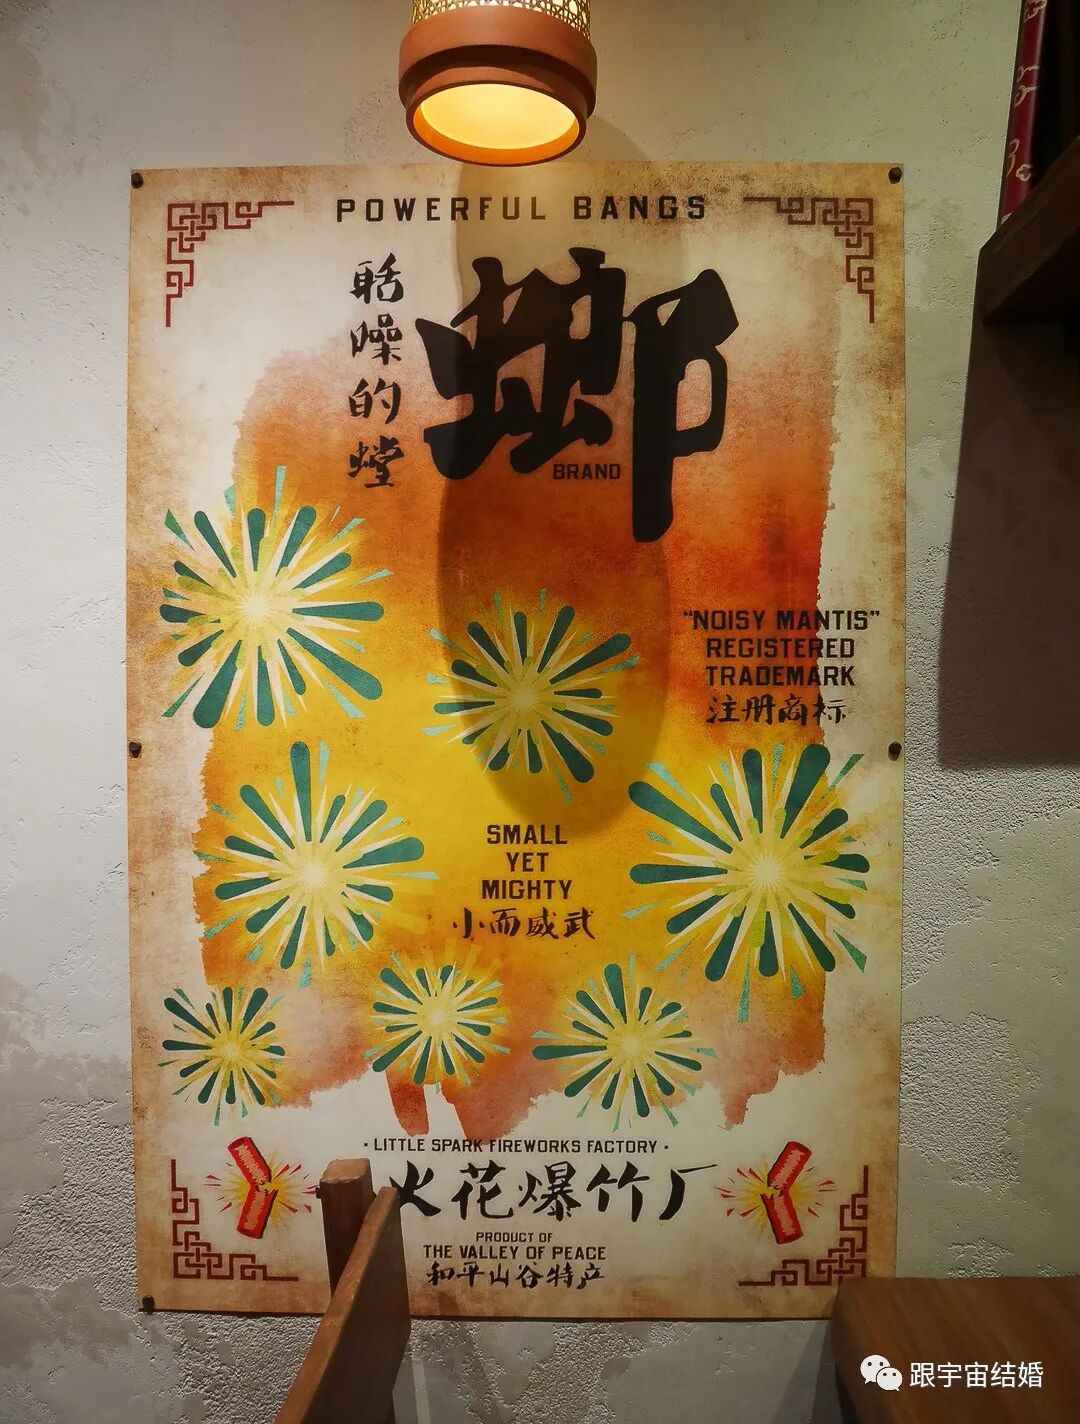 POWERFUL BANGS
聒噪的螳
螂
BRAND
"NOISY MANTIS"
REGISTERED
TRADEMARK
注册商标
SMALL
YET
MIGHTY
小而威武
· LITTLE SPARK FIREWORKS FACTORY ·
火花爆竹厂
PRODUCT OF
THE VALLEY OF PEACE
和平山谷特产
跟宇宙结婚